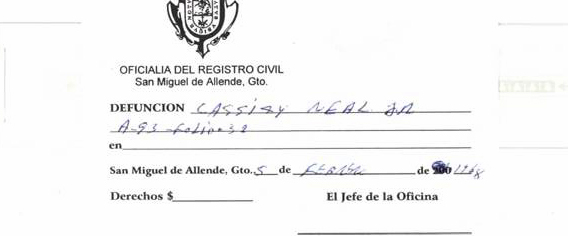 OFICIALIA DEL REGISTRO CIVIL
San Miguel de Allende, Gto.
DEFUNCION CASSIDY NEAL JR
A-93 -folio 32
en
San Miguel de Allende, Gto. 5 de de 200 1968
Derechos $ El Jefe de la Oficina